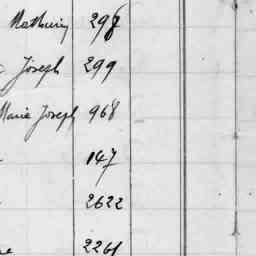 Mathurin 298
Joseph 299
Marie Joseph 968
147
2622
2261